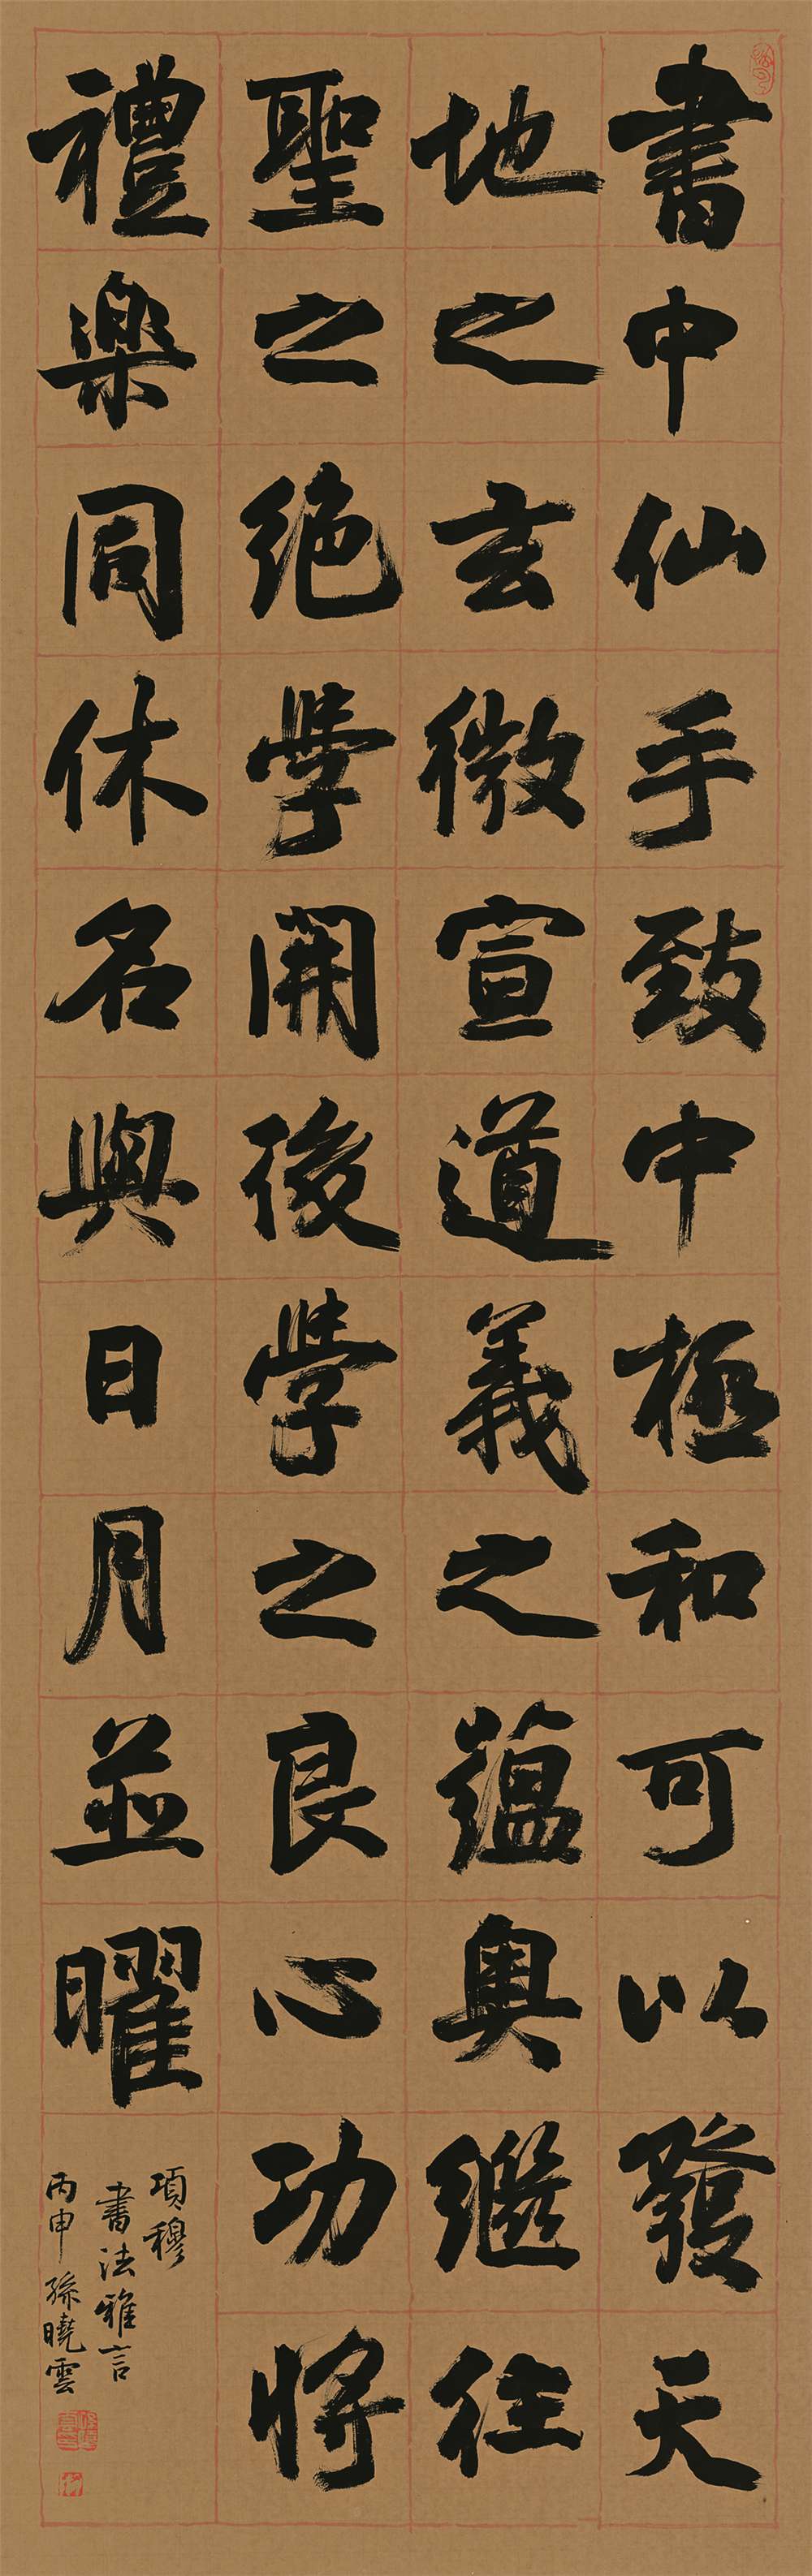 書中仙手致中極和可以發天
地之玄微宣道義之蘊奧繼往
聖之絕學開後學之良心功將
禮樂同休名與日月並曜
項穆
書法雅言
丙申孫曉雲